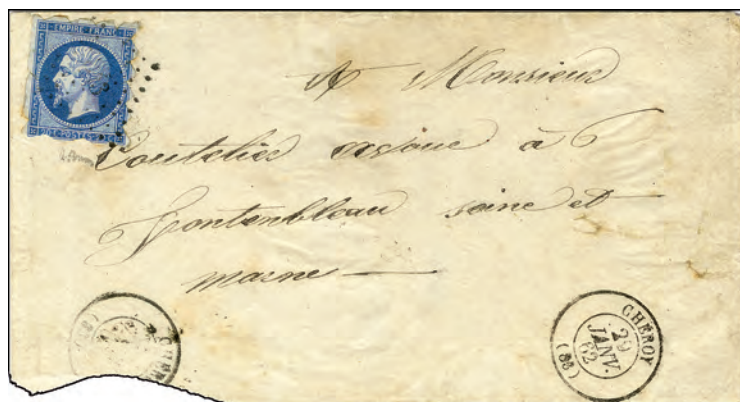 EMPIRE FRANC
POSTES
A Monsieur
Coutelier avoue à
Fontenbleau seine et
marne
CHEROY
29
JANV.
62
(88)